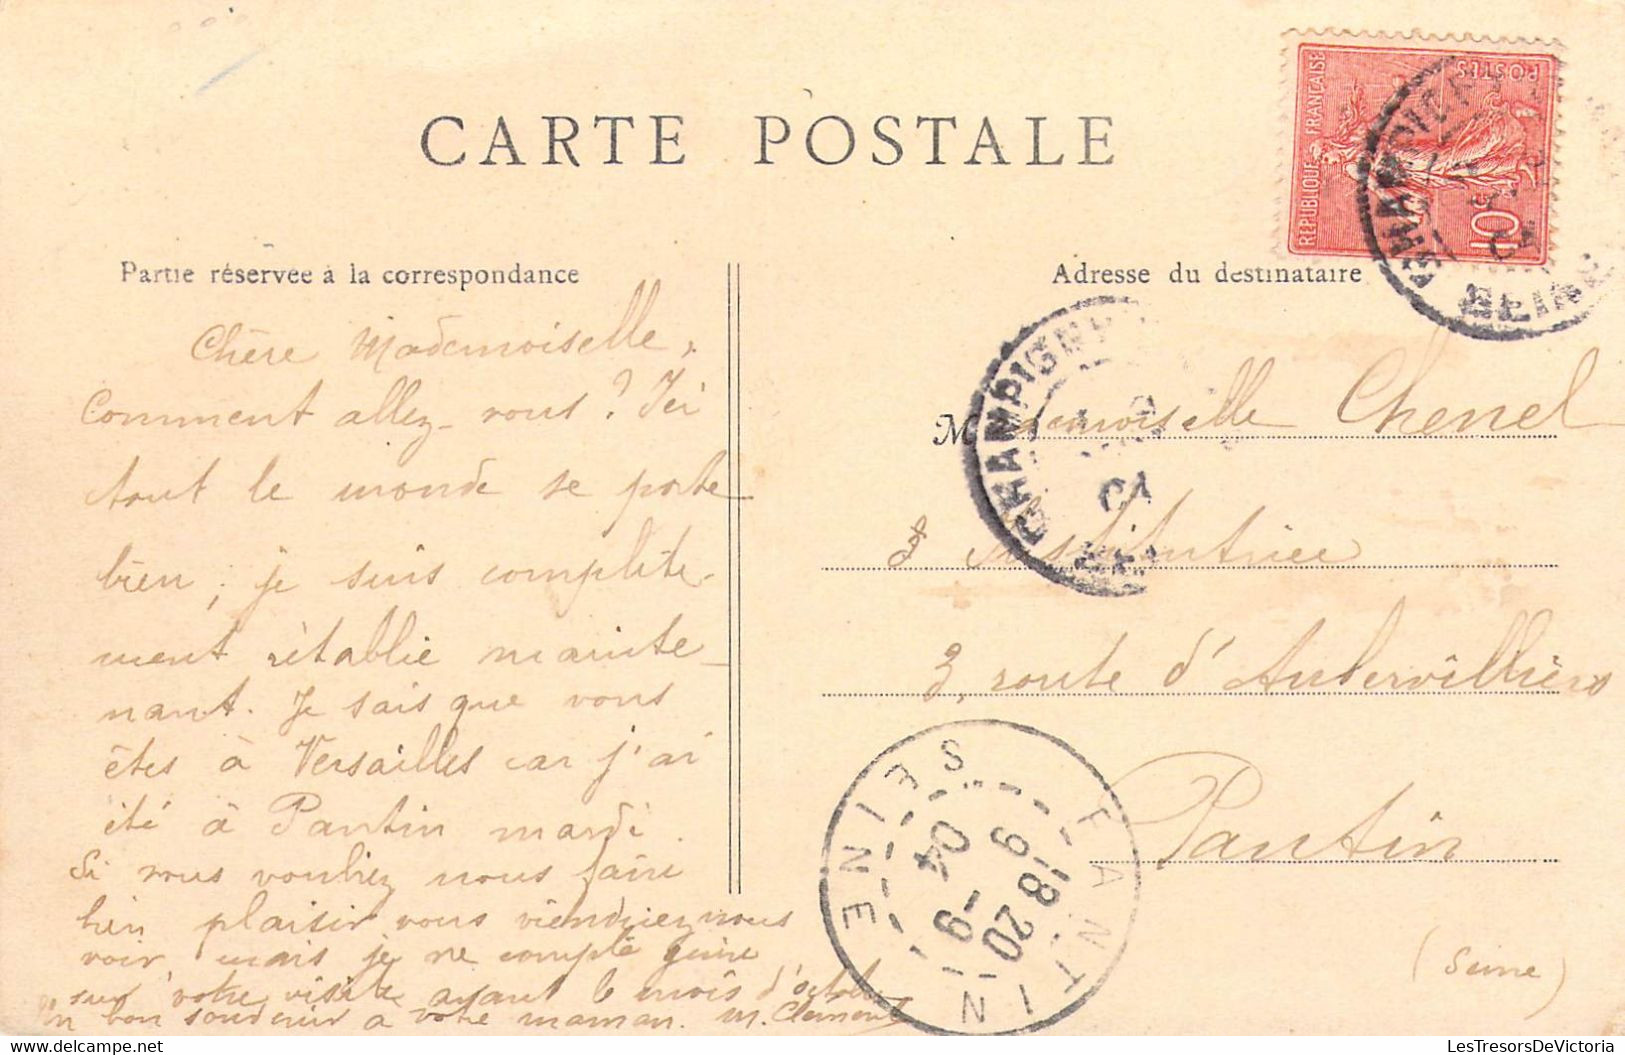 CARTE POSTALE
REPUBLIQUE FRANÇAISE
POSTES
10c
Partie réservée à la correspondance
Adresse du destinataire
Chère Mademoiselle,
Comment allez-vous? Ici
tout le monde se porte
bien, je suis complète-
ment rétablie mainte-
nant. Je sais que vous
êtes à Versailles car j'ai
été à Pantin mardi.
Si vous vouliez nous faire
bien plaisir vous viendriez nous
voir, mais je ne compte guère
sur votre visite avant le mois d'octob
Un bon souvenir à votre maman. M. Clement
Mademoiselle Chenel
Institutrice
3, route d'Aubervilliers
Pantin
(Seine)
CHAMPIGNY
04
SEINE
CHAMPIGNY
04
PANTIN
18 20
9 -9
04
SEINE
LesTresorsDeVictoria
www.delcampe.net